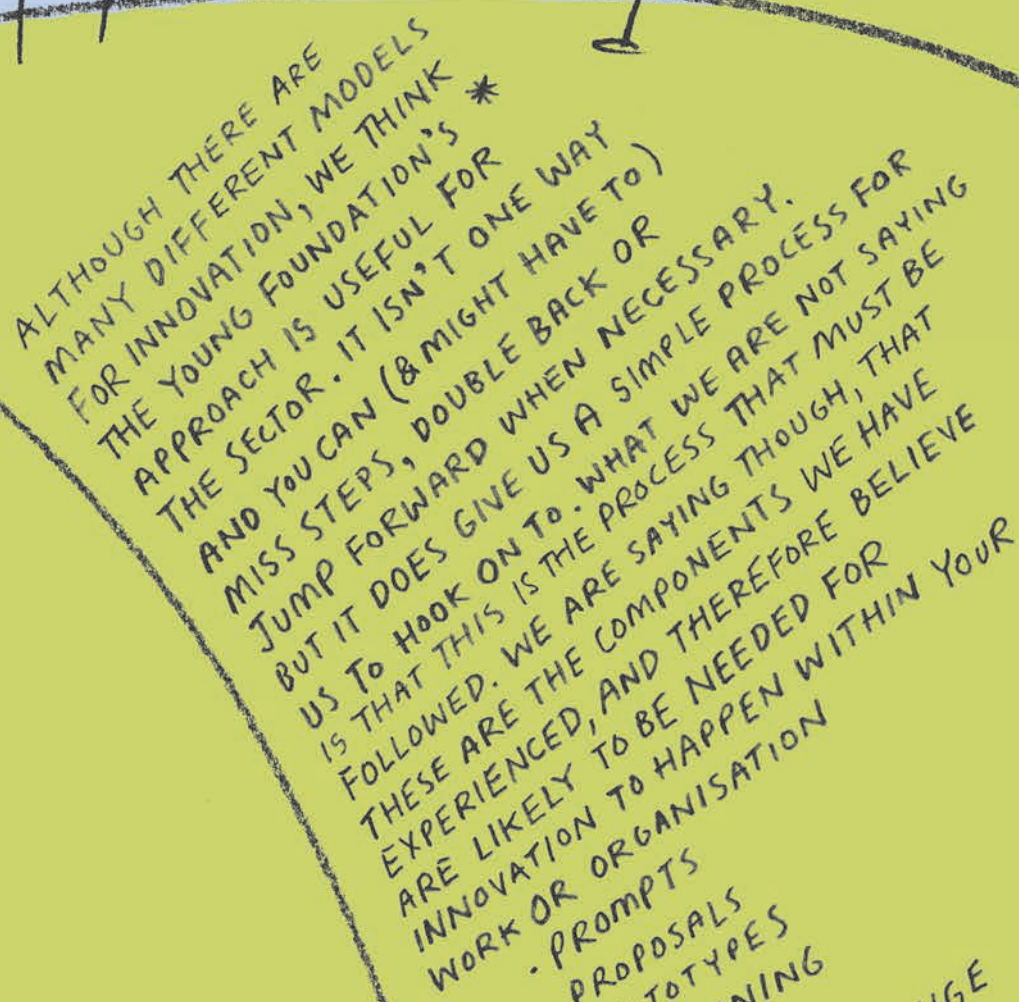 ALTHOUGH THERE ARE
MANY DIFFERENT MODELS
FOR INNOVATION, WE THINK
THE YOUNG FOUNDATION'S *
APPROACH IS USEFUL FOR
THE SECTOR. IT ISN'T ONE WAY
AND YOU CAN (& MIGHT HAVE TO)
MISS STEPS, DOUBLE BACK OR
JUMP FORWARD WHEN NECESSARY.
BUT IT DOES GIVE US A SIMPLE PROCESS FOR
US TO HOOK ON TO. WHAT WE ARE NOT SAYING
IS THAT THIS IS THE PROCESS THAT MUST BE
FOLLOWED. WE ARE SAYING THOUGH, THAT
THESE ARE THE COMPONENTS WE HAVE
EXPERIENCED, AND THEREFORE BELIEVE
ARE LIKELY TO BE NEEDED FOR
INNOVATION TO HAPPEN WITHIN YOUR
WORK OR ORGANISATION
· PROMPTS
PROPOSALS
TOTYPES
NING